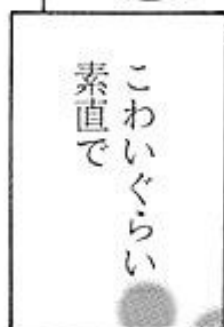 こわいぐらい
素直で